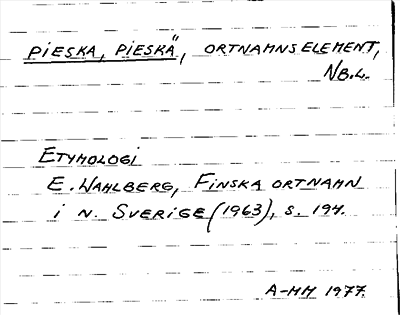 PIESKA, PIESKÄ, ORTNAMNSELEMENT,
NB.L.
ETYMOLOGI
E. WAHLBERG, FINSKA ORTNAMN
I N. SVERIGE (1963), S. 194.
A-MM 1977.